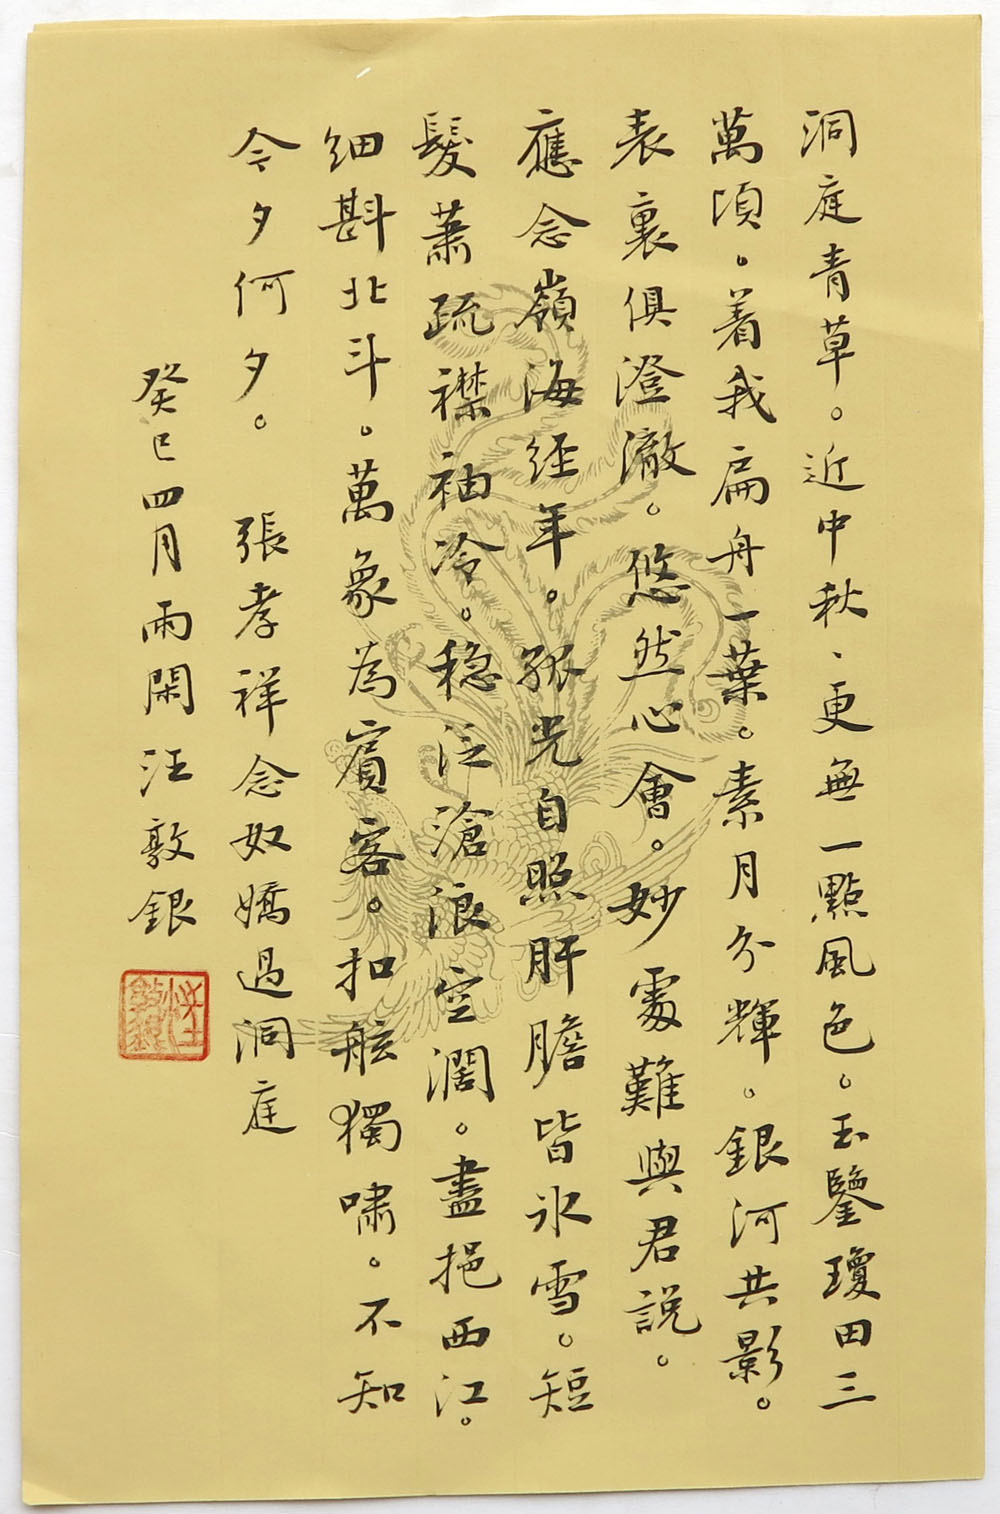 洞庭青草。近中秋、更無一點風色。玉鑒瓊田三
萬頃。着我扁舟一葉。素月分輝。銀河共影。
表裏俱澄澈。悠然心會。妙處難與君説。
應念嶺海經年。孤光自照肝膽皆冰雪。短
髮蕭疏襟袖冷。穏泛滄浪空濶。盡挹西江。
細斟北斗。萬象為賓客。扣舷獨嘯。不知
今夕何夕。 張孝祥念奴嬌過洞庭
癸巳四月雨閑汪敦銀
汪敦銀